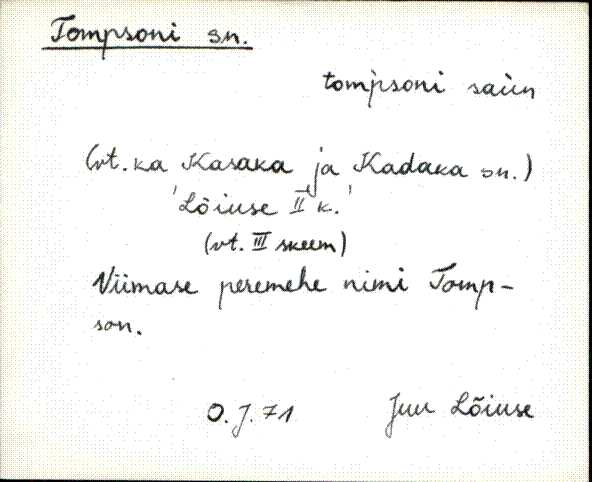 Tompsoni sn.
tompsoni saun
(vt. ka Kasaka ja Kadaka sn.)
'Lõiuse II k.'
(vt. III skeem)
Viimase peremehe nimi Tomp-
son.
O. J. 71 Juu Lõiuse